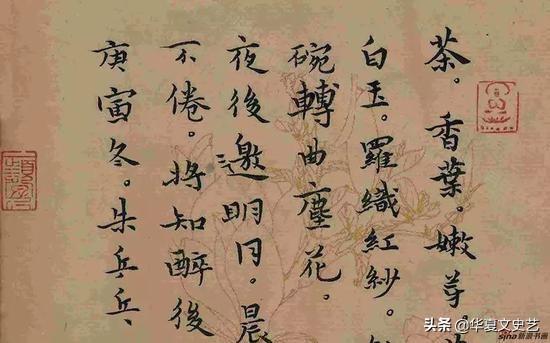 茶。香葉。嫩芽。
白玉。羅織紅紗。
碗轉曲塵花。
夜後邀明月。晨
不倦。將知醉後
庚寅冬。朱
头条 @华夏文史艺
sina 新浪书画